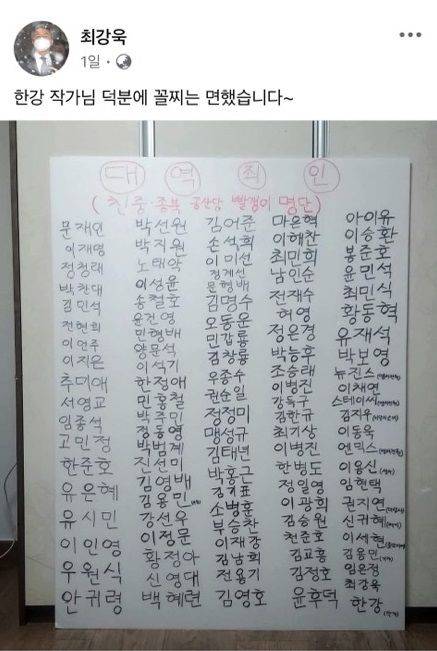 최강욱
1일 ·
한강 작가님 덕분에 꼴찌는 면했습니다~
대 역 죄 인
(친중·종북 공산당 빨갱이 명단)
문재인
이재명
정청래
박찬대
김민석
전현희
이언주
이지은
추미애
서영교
임종석
고민정
한준호
유은혜
유시민
이인영
우원식
안귀령
박선원
박지원
노태악
이성윤
송철호
윤건영
민형배
양문석
이석기
한정애
민홍철
박주민
정동영
박범계
진선미
김영배
김용민
강선우
이정문
황정아
신영대
백혜련
김어준
손석희
이미선
정계선
문형배
김명수
오동운
민갑룡
김창룡
우종수
권순일
정정미
맹성규
김태년
박홍근
김기표
소병훈
부승찬
이재강
김남희
전용기
김영호
마은혁
이해찬
최민희
남인순
전재수
허영
정은경
박능후
조승래
이병진
강득구
김한규
최기상
이병진
한병도
정일영
이광희
김승원
천준호
김교흥
김정호
윤후덕
아이유
이승환
봉준호
윤민석
최민식
황동혁
유재석
박보영
뉴진스
이채연
스테이씨
김지우
이동욱
엔믹스
이용신
임현택
권지연
신규혜
이세현
김용민
임은정
최강욱
한강(작가)